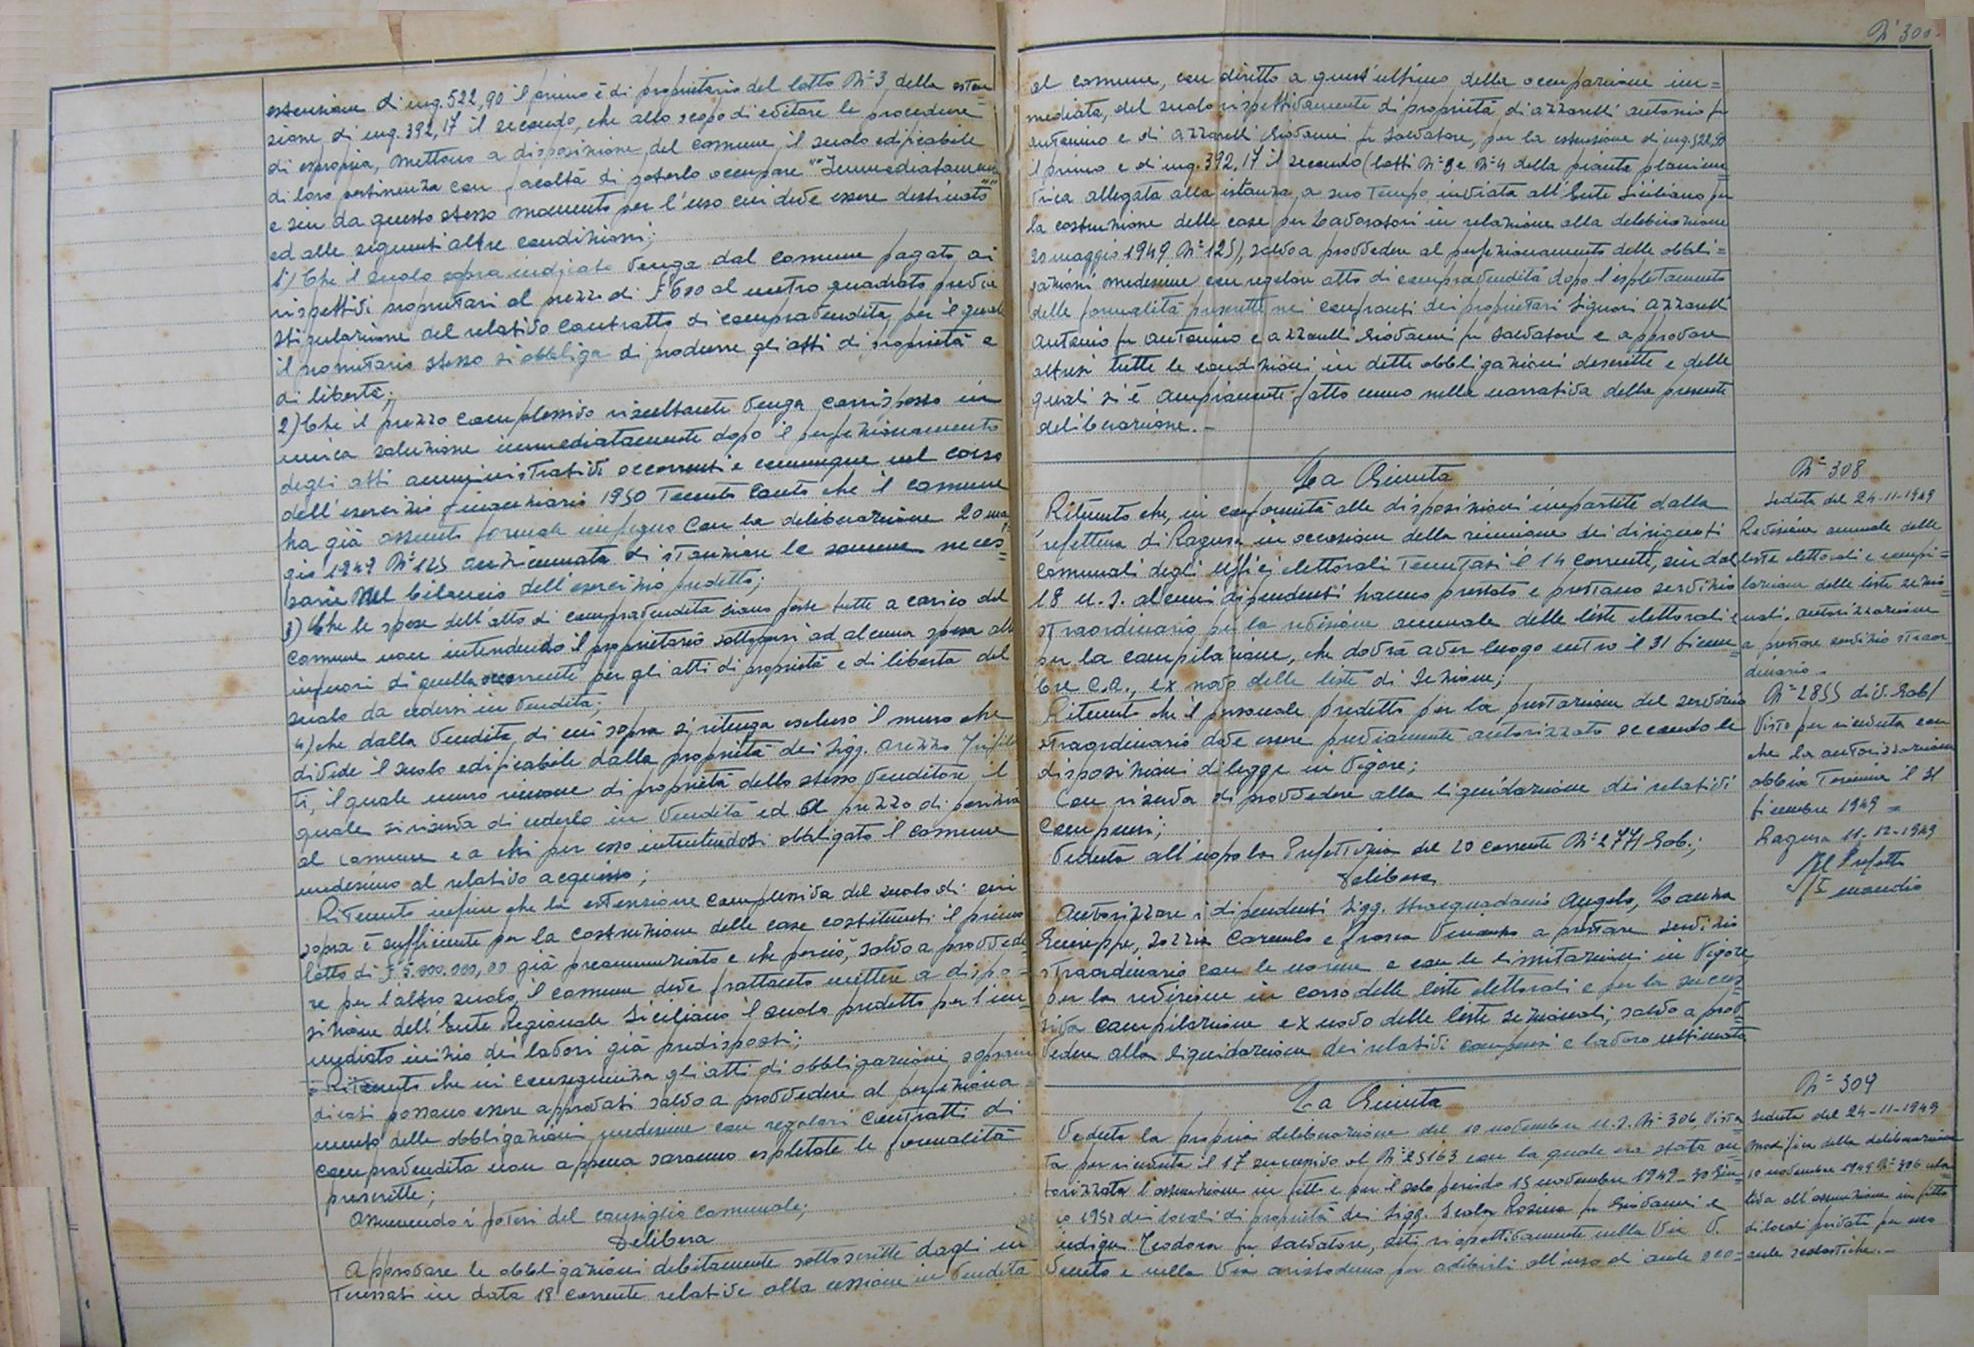 estensione di mq. 522,90 il primo è di proprietario del lotto N° 3 della esten=
sione di mq. 392,17 il secondo, che allo scopo di evitare le procedure
di esproprio, mettono a disposizione del comune il suolo edificabile
di loro pertinenza con facoltà di poterlo occupare "Immediatamente"
e sin da questo stesso momento per l'uso cui deve essere destinato
ed alle seguenti altre condizioni;
1°) Che il suolo sopra indicato venga dal comune pagato ai
rispettivi proprietari al prezzo di £ 600 al metro quadrato previa
stipulazione del relativo contratto di compravendita, per il quale
il proprietario stesso si obbliga di produrre gli atti di proprietà e
di libertà;
2) Che il prezzo complessivo risultante venga corrisposto in
unica soluzione immediatamente dopo il perfezionamento
degli atti amministrativi occorrenti e comunque nel corso
dell'esercizio finanziario 1950 tenuto conto che il comune
ha già assunto formale impegno con la deliberazione 20 mag=
gio 1949 N° 125 di stanziare le somme neces=
sarie nel bilancio dell'esercizio predetto;
3) Che le spese dell'atto di compravendita siano poste tutte a carico del
comune non intendendo il proprietario sottoporsi ad alcuna spesa all'
infuori di quella occorrente per gli atti di proprietà e di libertà del
suolo da cedersi in vendita;
4) che dalla vendita di cui sopra si ritenga escluso il muro che
divide il suolo edificabile dalla proprietà dei Sigg. Arezzo
il quale muro rimane di proprietà dello stesso venditore il
quale si riserva di cederlo in vendita ed al prezzo di perizia
al comune e a chi per esso intendendosi obbligato il comune
medesimo al relativo acquisto;
Ritenuto infine che la estensione complessiva del suolo di cui
sopra è sufficiente per la costruzione delle case costituenti il primo
lotto di £ 5.000.000,00 già preannunziato e che perciò, salvo a provvede=
re per l'altro suolo, il comune deve frattanto mettere a dispo=
sizione dell'Ente Regionale Siciliano il suolo predetto per l'im=
mediato inizio dei lavori già predisposti;
Ritenuto che in conseguenza gli atti di obbligazione soprain=
dicati possano essere approvati salvo a provvedere al perfeziona=
mento delle obbligazioni medesime con regolari contratti di
compravendita non appena saranno espletate le formalità
prescritte;
Assumendo i poteri del consiglio comunale;
Delibera
Approvare le obbligazioni debitamente sottoscritte dagli in=
teressati in data 18 corrente relative alla cessione in vendita
N° 300
al comune, con diritto a quest'ultimo della occupazione im=
mediata, del suolo rispettivamente di proprietà di Azzarelli Antonio fu
Antonino e di Azzarelli Giovanni fu Salvatore, per la estensione di mq. 522,90
il primo e di mq. 392,17 il secondo (lotti N° 3 e N° 4 della pianta planime=
trica allegata alla istanza, a suo tempo inviata all'Ente Siciliano per
la costruzione delle case per Lavoratori in relazione alla deliberazione
20 maggio 1949 N° 125), salvo a provvedere al perfezionamento delle obbli=
gazioni medesime con regolare atto di compravendita dopo l'espletamento
delle formalità prescritte nei confronti dei proprietari Signori Azzarelli
Antonio fu Antonino e Azzarelli Giovanni fu Salvatore e approvare
altresì tutte le condizioni in dette obbligazioni descritte e delle
quali si è ampiamente fatto cenno nella narrativa della presente
deliberazione. -
La Giunta
Ritenuto che, in conformità alle disposizioni impartite dalla
Prefettura di Ragusa in occasione della riunione dei dirigenti
comunali degli Uffici elettorali tenutasi il 14 corrente, sin dal
18 u. s. alcuni dipendenti hanno prestato e prestano servizio
straordinario per la revisione annuale delle liste elettorali e
per la compilazione, che dovrà aver luogo entro il 31 dicem=
bre c.a., ex novo delle liste di Sezione;
Ritenuto che il personale predetto per la prestazione del servizio
straordinario deve essere previamente autorizzato secondo le
disposizioni di legge in vigore;
Con riserva di provvedere alla liquidazione dei relativi
compensi;
Veduta all'uopo la Prefettizia del 20 corrente N° 2771 Gab.;
Delibera
Autorizzare i dipendenti Sigg. Stracquadanio Angelo, Lauria
Giuseppe, Carmelo e Frasca Vincenzo a prestare servizio
straordinario con le norme e con le limitazioni in vigore
per la revisione in corso delle liste elettorali e per la succes=
siva compilazione ex novo delle liste sezionali, salvo a prov=
vedere alla liquidazione dei relativi compensi a lavoro ultimato
La Giunta
Veduta la propria deliberazione del 10 novembre u. s. N° 306 vista=
ta per ricevuta il 17 successivo al N° 25163 con la quale era stata au=
torizzata l'assunzione in fitto e per il solo periodo 15 novembre 1949 - 30 giu=
gno 1950 dei locali di proprietà dei Sigg. Rosina fu Giovanni e
Teodora fu Salvatore, siti rispettivamente nella Via V.
Veneto e nella Via Aristodemo per adibirli all'uso di aule sco=
N° 308
Seduta del 24-11-1949
Revisione annuale delle
liste elettorali e compi=
lazione delle liste sezio=
nali. autorizzazione
a prestare servizio straor=
dinario -
N° 2855 div. Gab/
Visto per ricevuta con
che la autorizzazione
abbia termine il 31
dicembre 1949 =
Ragusa 11-12-1949
Il Prefetto
N° 309
Seduta del 24-11-1949
Modifica della deliberazione
10 novembre 1949 N° 306 rela=
tiva all'assunzione in fitto
di locali privati per uso
aule scolastiche. -